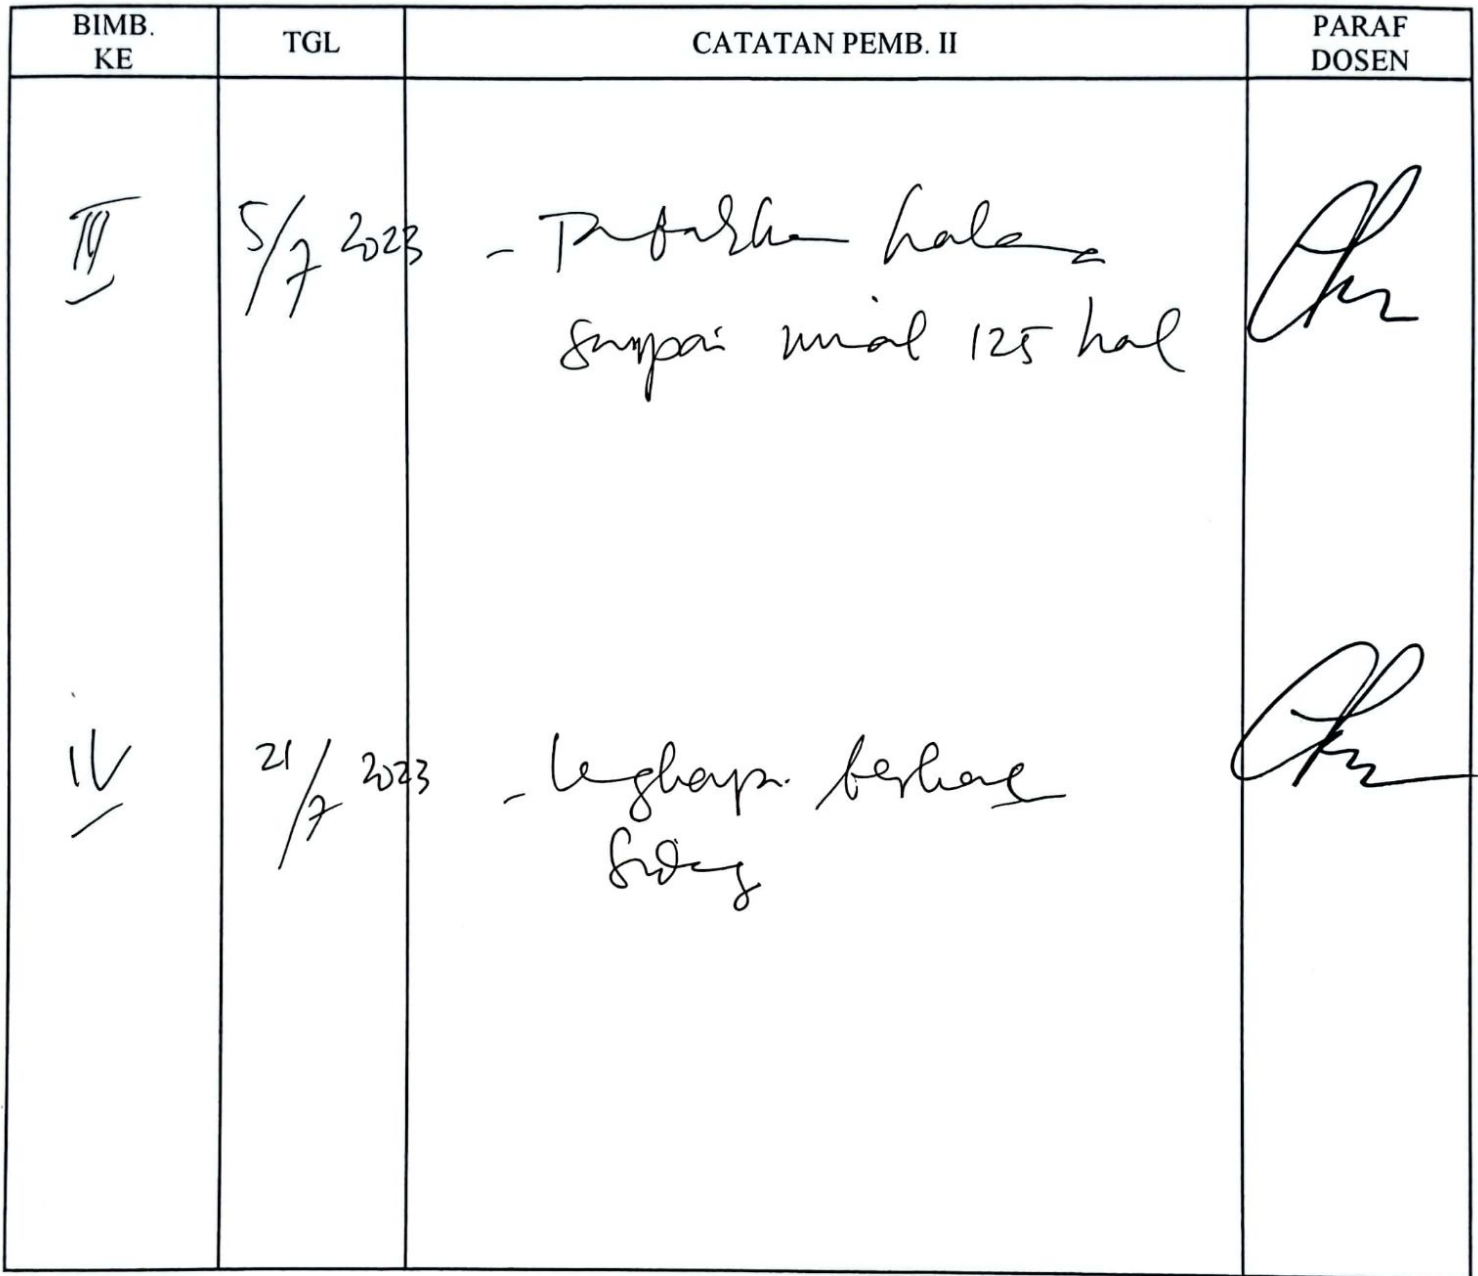 BIMB. KE TGL CATATAN PEMB. II PARAF DOSEN
III 5/7 2023 - halaman
sampai 125 hal
IV 21/7 2023 - lengkapi berkas
sidang